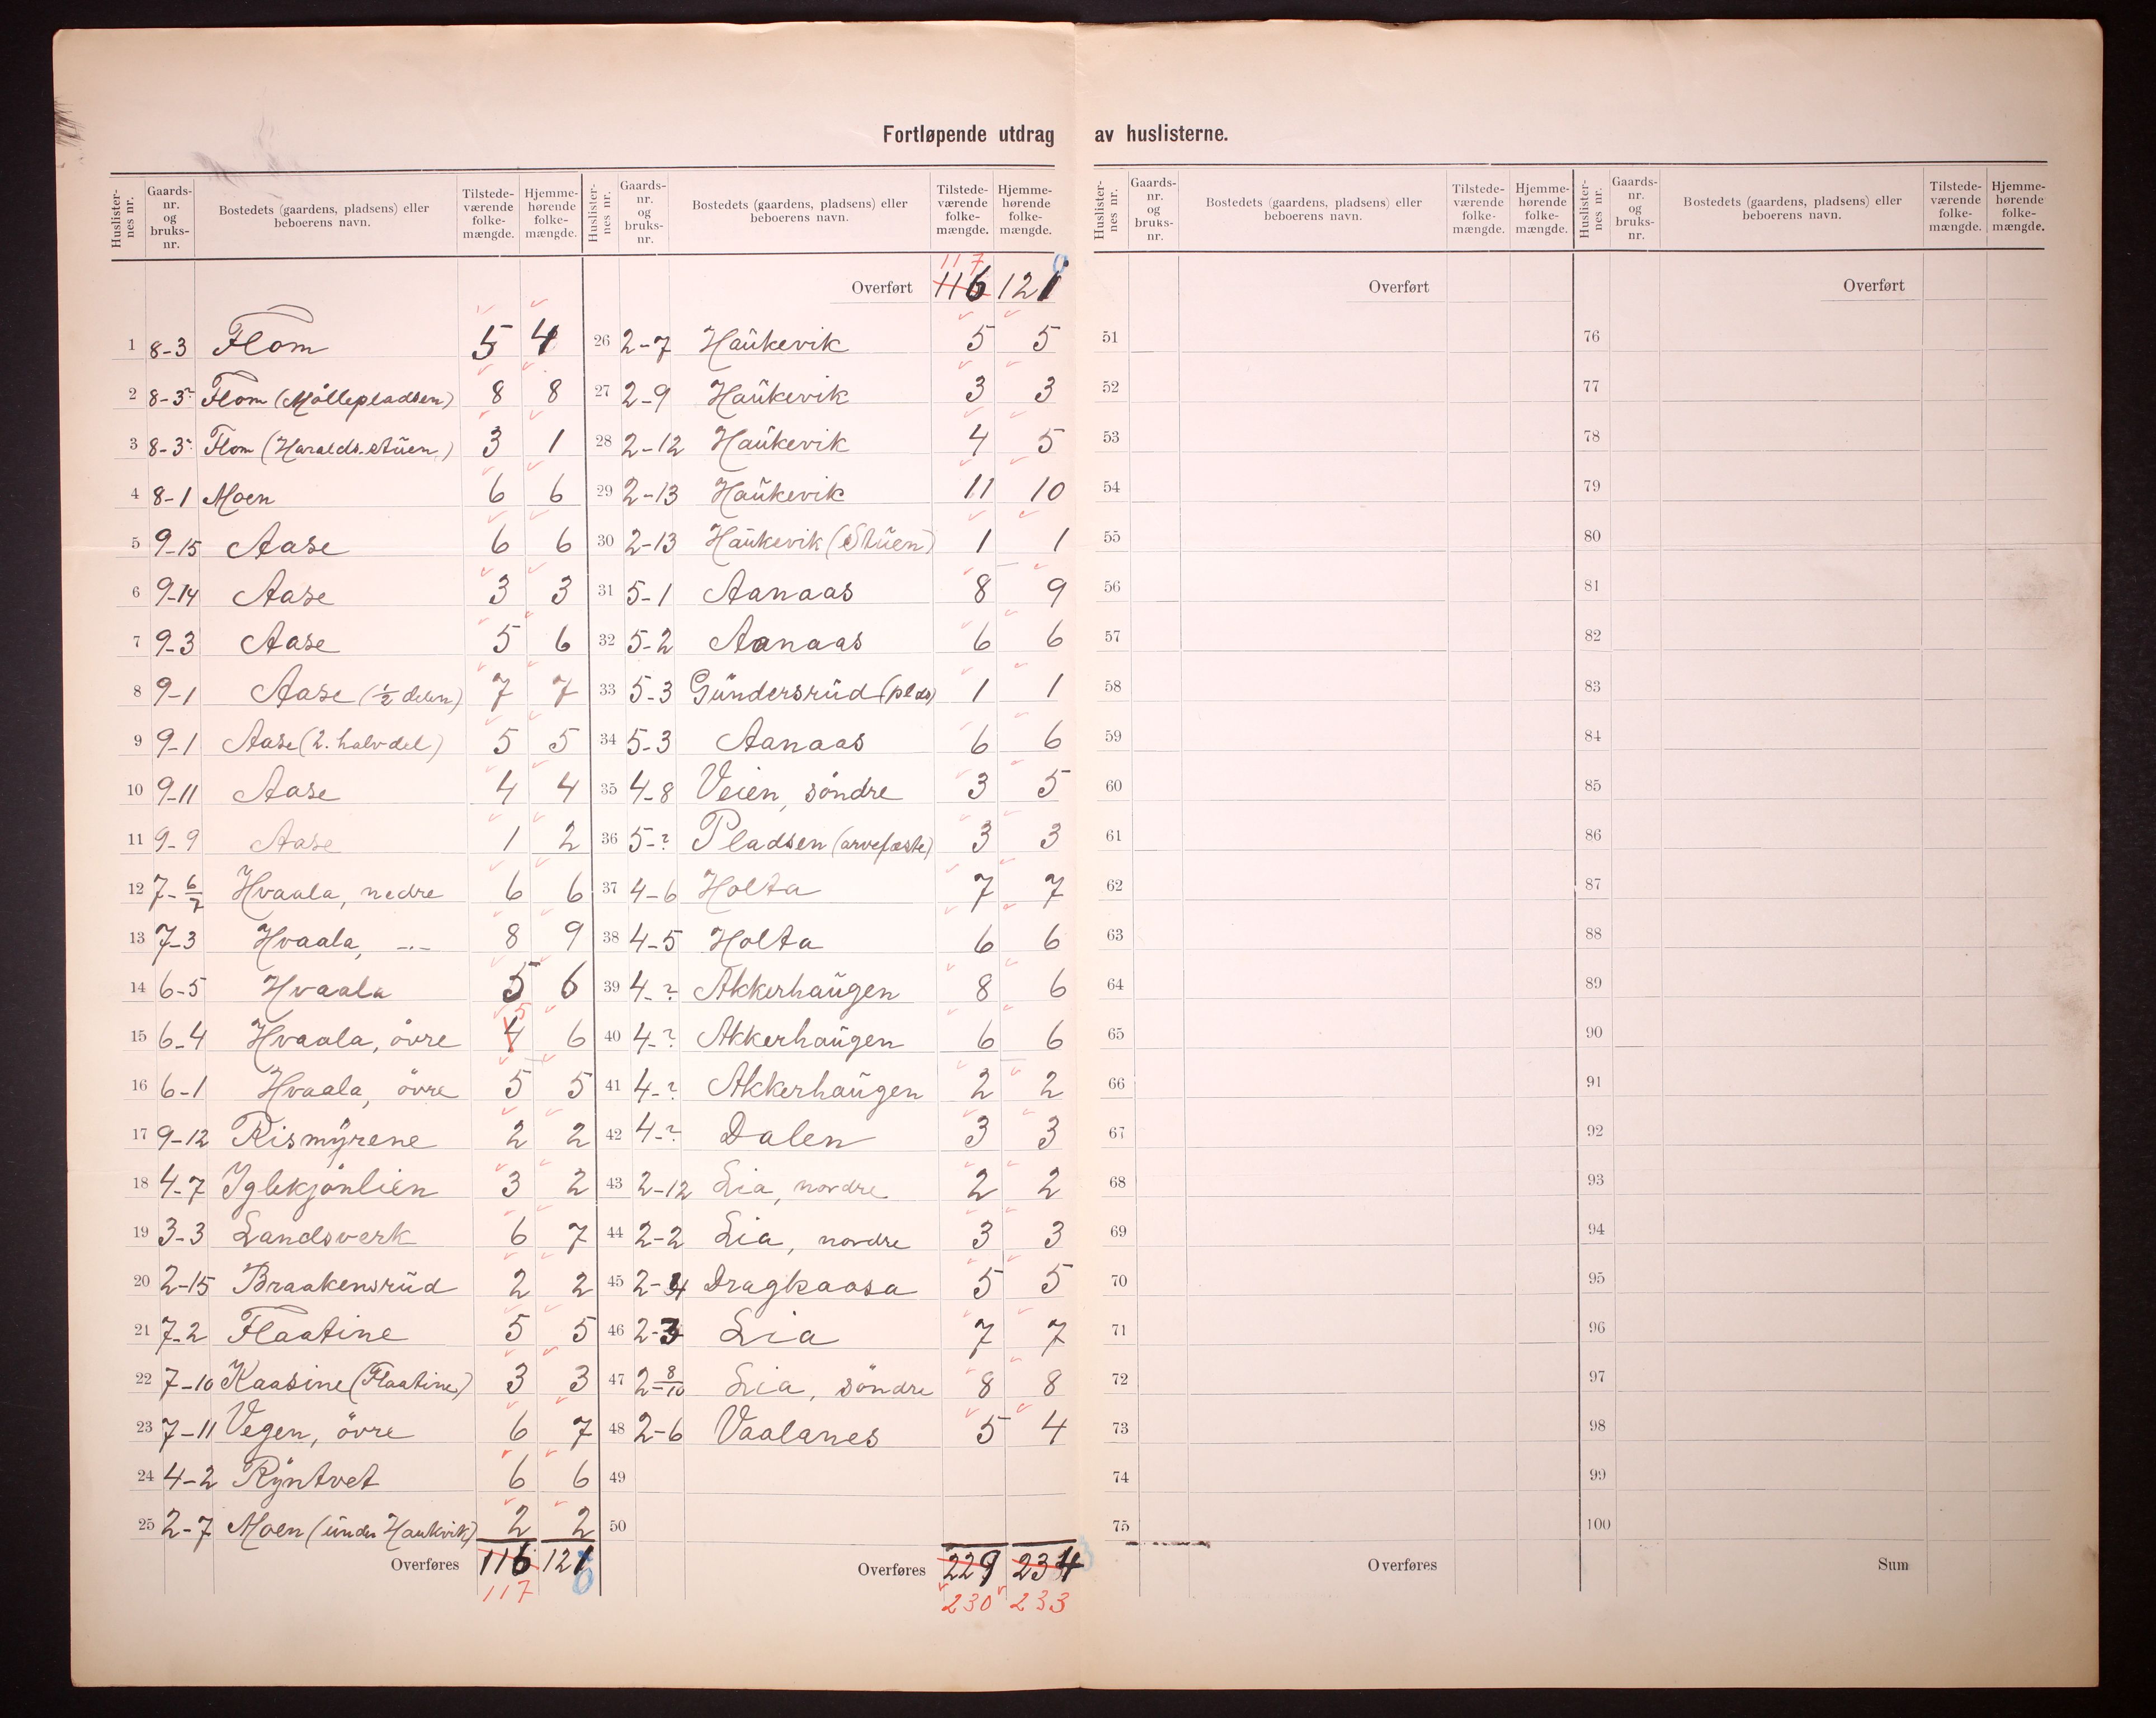 Fortløpende utdrag av huslisterne.
Huslister-nes nr. Gaards-nr. og bruks-nr. Bostedets (gaardens, pladsens) eller beboerens navn. Tilstede-værende folke-mængde. Hjemme-hørende folke-mængde.
1 8-3 Flom 5 4
2 8-3 Flom (Møllepladsen) 8 8
3 8-3 Flom (Haralds-stuen) 3 1
4 8-1 Moen 6 6
5 9-15 Aase 6 6
6 9-14 Aase 3 3
7 9-3 Aase 5 6
8 9-1 Aase (½ delen) 7 7
9 9-1 Aase (2. halvdel) 5 5
10 9-11 Aase 4 4
11 9-9 Aase 1 2
12 7-6/7 Hvaala, nedre 6 6
13 7-3 Hvaala, -.- 8 9
14 6-5 Hvaala 5 6
15 6-4 Hvaala, övre 4 5 6
16 6-1 Hvaala, övre 5 5
17 9-12 Rismyrene 2 2
18 4-7 Iglekjönlien 3 2
19 3-3 Landsverk 6 7
20 2-15 Braakensrud 2 2
21 7-2 Flaatine 5 5
22 7-10 Kaasine (Flaatine) 3 3
23 7-11 Vegen, övre 6 7
24 4-2 Ryntvet 6 6
25 2-7 Moen (under Haukvik) 2 2
Overføres 116 121
117 0
Huslister-nes nr. Gaards-nr. og bruks-nr. Bostedets (gaardens, pladsens) eller beboerens navn. Tilstede-værende folke-mængde. Hjemme-hørende folke-mængde.
117 0
Overført 116 121
26 2-7 Haukevik 5 5
27 2-9 Haukevik 3 3
28 2-12 Haukevik 4 5
29 2-13 Haukevik 11 10
30 2-13 Haukevik (Stuen) 1 1
31 5-1 Aanaas 8 9
32 5-2 Aanaas 6 6
33 5-3 Gundersrud (plds) 1 1
34 5-3 Aanaas 6 6
35 4-8 Veien, söndre 3 5
36 5-? Pladsen (arvefæste) 3 3
37 4-6 Holta 7 7
38 4-5 Holta 6 6
39 4-? Akkerhaugen 8 6
40 4-? Akkerhaugen 6 6
41 4-? Akkerhaugen 2 2
42 4-? Dalen 3 3
43 2-12 Lia, nordre 2 2
44 2-2 Lia, nordre 3 3
45 2-4 Dragkaasa 5 5
46 2-3 Lia 7 7
47 2-8/10 Lia, söndre 8 8
48 2-6 Vaalanes 5 4
49
50
Overføres 229 234
230 233
Huslister-nes nr. Gaards-nr. og bruks-nr. Bostedets (gaardens, pladsens) eller beboerens navn. Tilstede-værende folke-mængde. Hjemme-hørende folke-mængde.
Overført
51
52
53
54
55
56
57
58
59
60
61
62
63
64
65
66
67
68
69
70
71
72
73
74
75
Overføres
Huslister-nes nr. Gaards-nr. og bruks-nr. Bostedets (gaardens, pladsens) eller beboerens navn. Tilstede-værende folke-mængde. Hjemme-hørende folke-mængde.
Overført
76
77
78
79
80
81
82
83
84
85
86
87
88
89
90
91
92
93
94
95
96
97
98
99
100
Sum